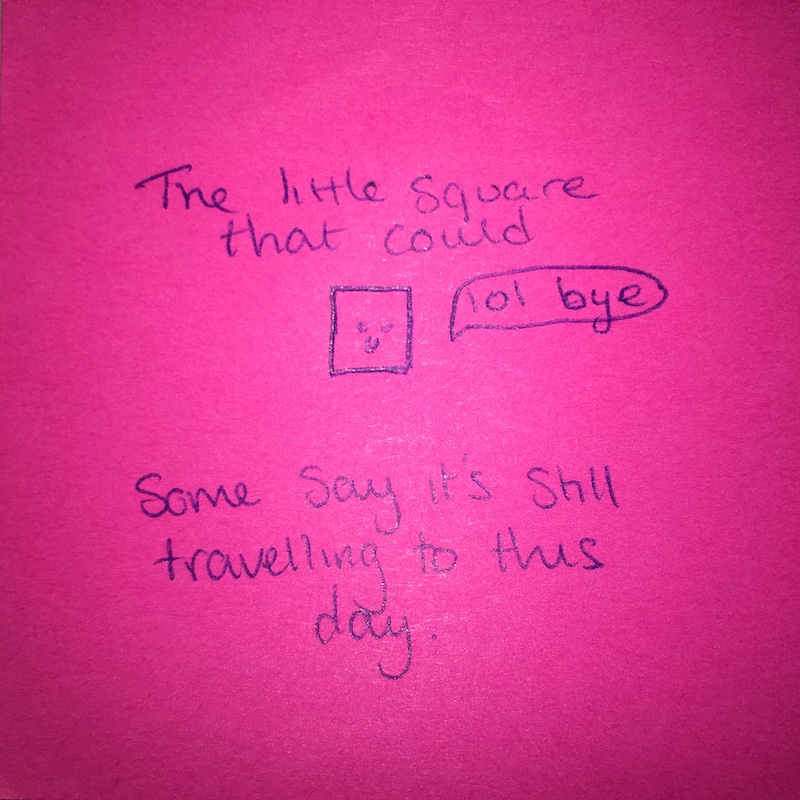 The little square
that could
lol bye
Some say it's still
travelling to this
day.